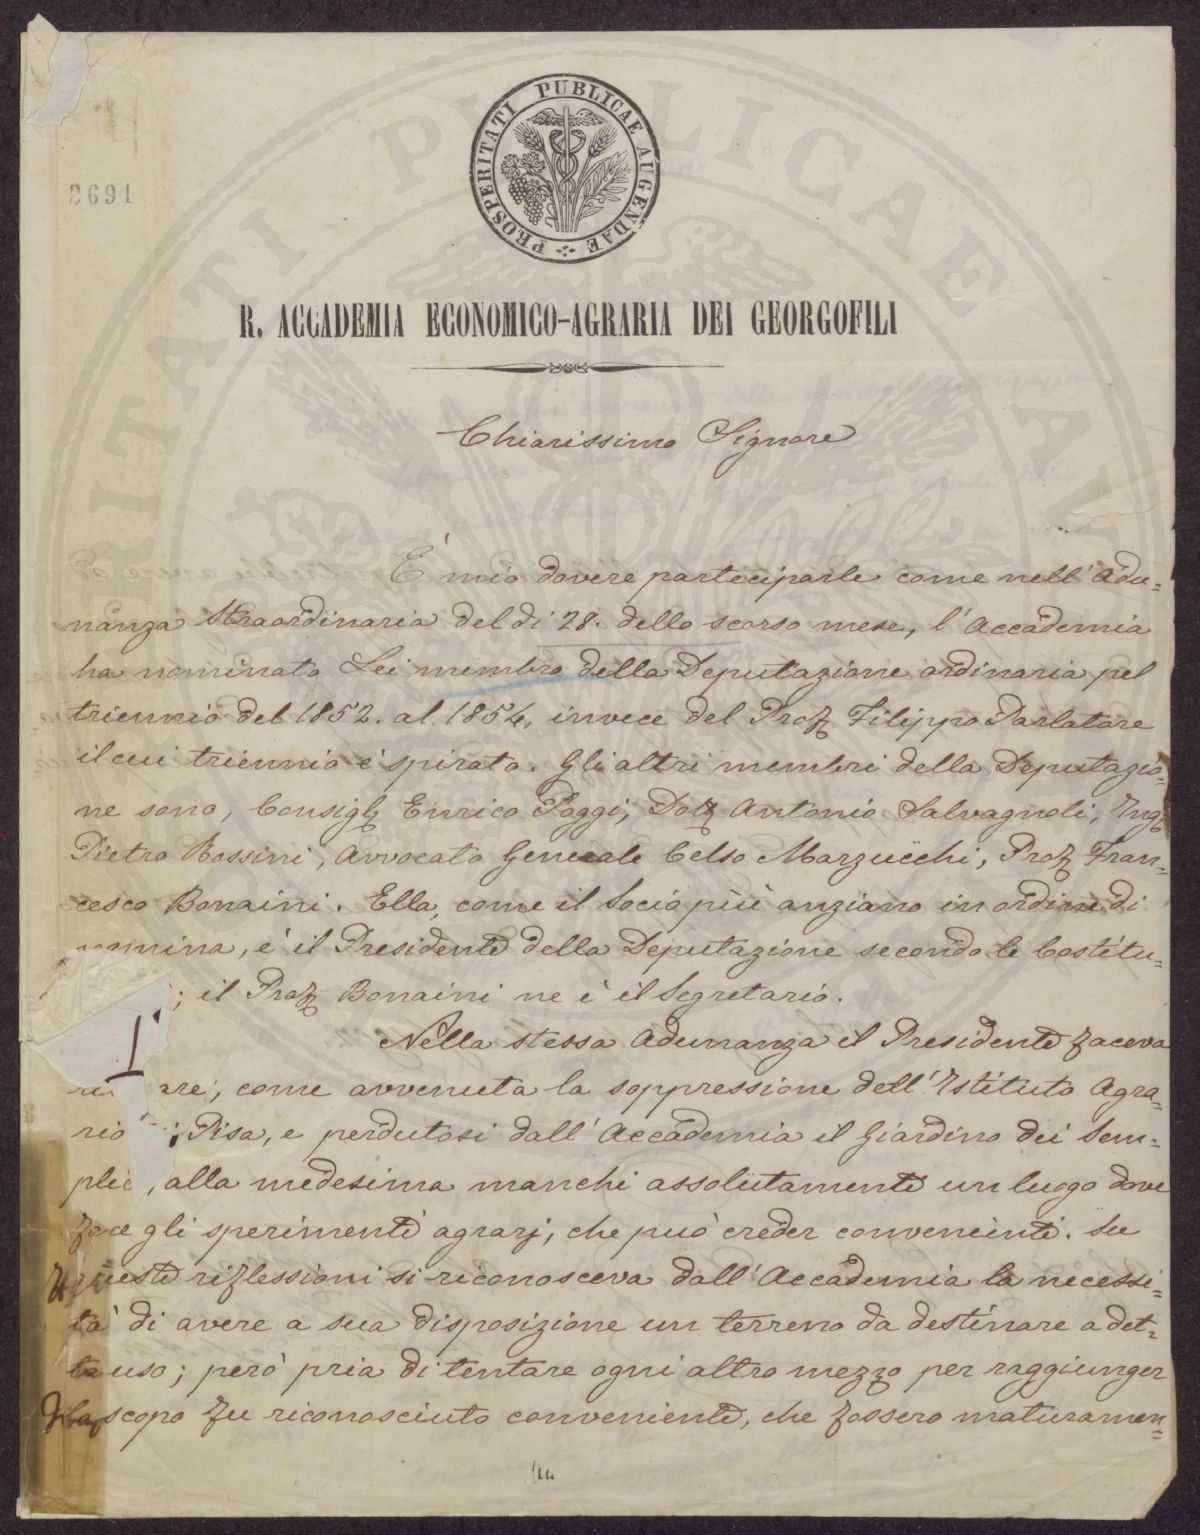 PROSPERITATI PUBLICAE AUGENDAE
2691
R. ACCADEMIA ECONOMICO-AGRARIA DEI GEORGOFILI
Chiarissimo Signore
È mio dovere parteciparle come nell'Adu-
nanza straordinaria del dì 28. dello scorso mese, l'Accademia
ha nominato Lei membro della Deputazione ordinaria pel
triennio del 1852. al 1854, invece del Prof. Filippo Parlatore
il cui triennio è spirato. Gli altri membri della Deputazio-
ne sono, Consigl. Enrico Poggi, Dott. Antonio Salvagnoli, Ing.
Pietro Rossini, Avvocato Generale Celso Marzucchi, Prof. Fran-
cesco Bonaini. Ella, come il Socio più anziano in ordine di
nomina, è il Presidente della Deputazione secondo le Costitu-
; il Prof. Bonaini ne è il Segretario.
Nella stessa Adunanza il Presidente faceva
are, come avvenuta la soppressione dell'Istituto Agra-
rio Pisa, e perdutosi dall'Accademia il Giardino dei Sem-
plic, alla medesima manchi assolutamente un luogo dove
fare gli sperimenti agrarj, che può creder convenienti. Su
queste riflessioni si riconosceva dall'Accademia la necessi-
tà di avere a sua disposizione un terreno da destinare a det-
to uso; però pria di tentare ogni altro mezzo per raggiunger
lo scopo fu riconosciuto conveniente, che fossero maturamen-